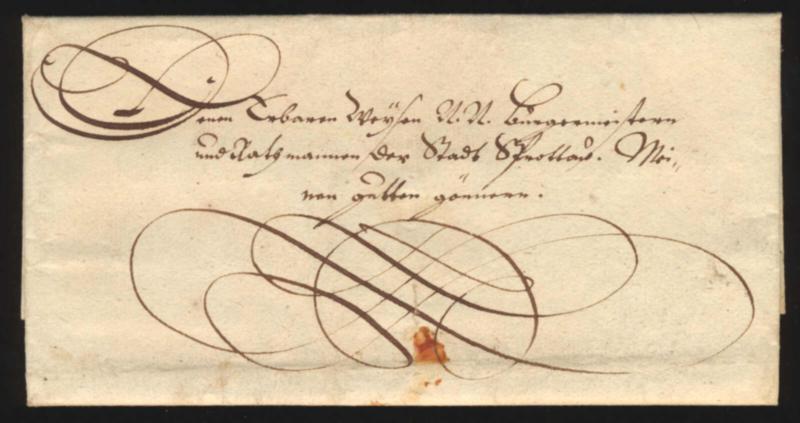 Denen Erbaren Weysen N. N. Burgermeistern
und Rathmannen der Stadt Sprottaw. Mei-
nen gutten gönnern.